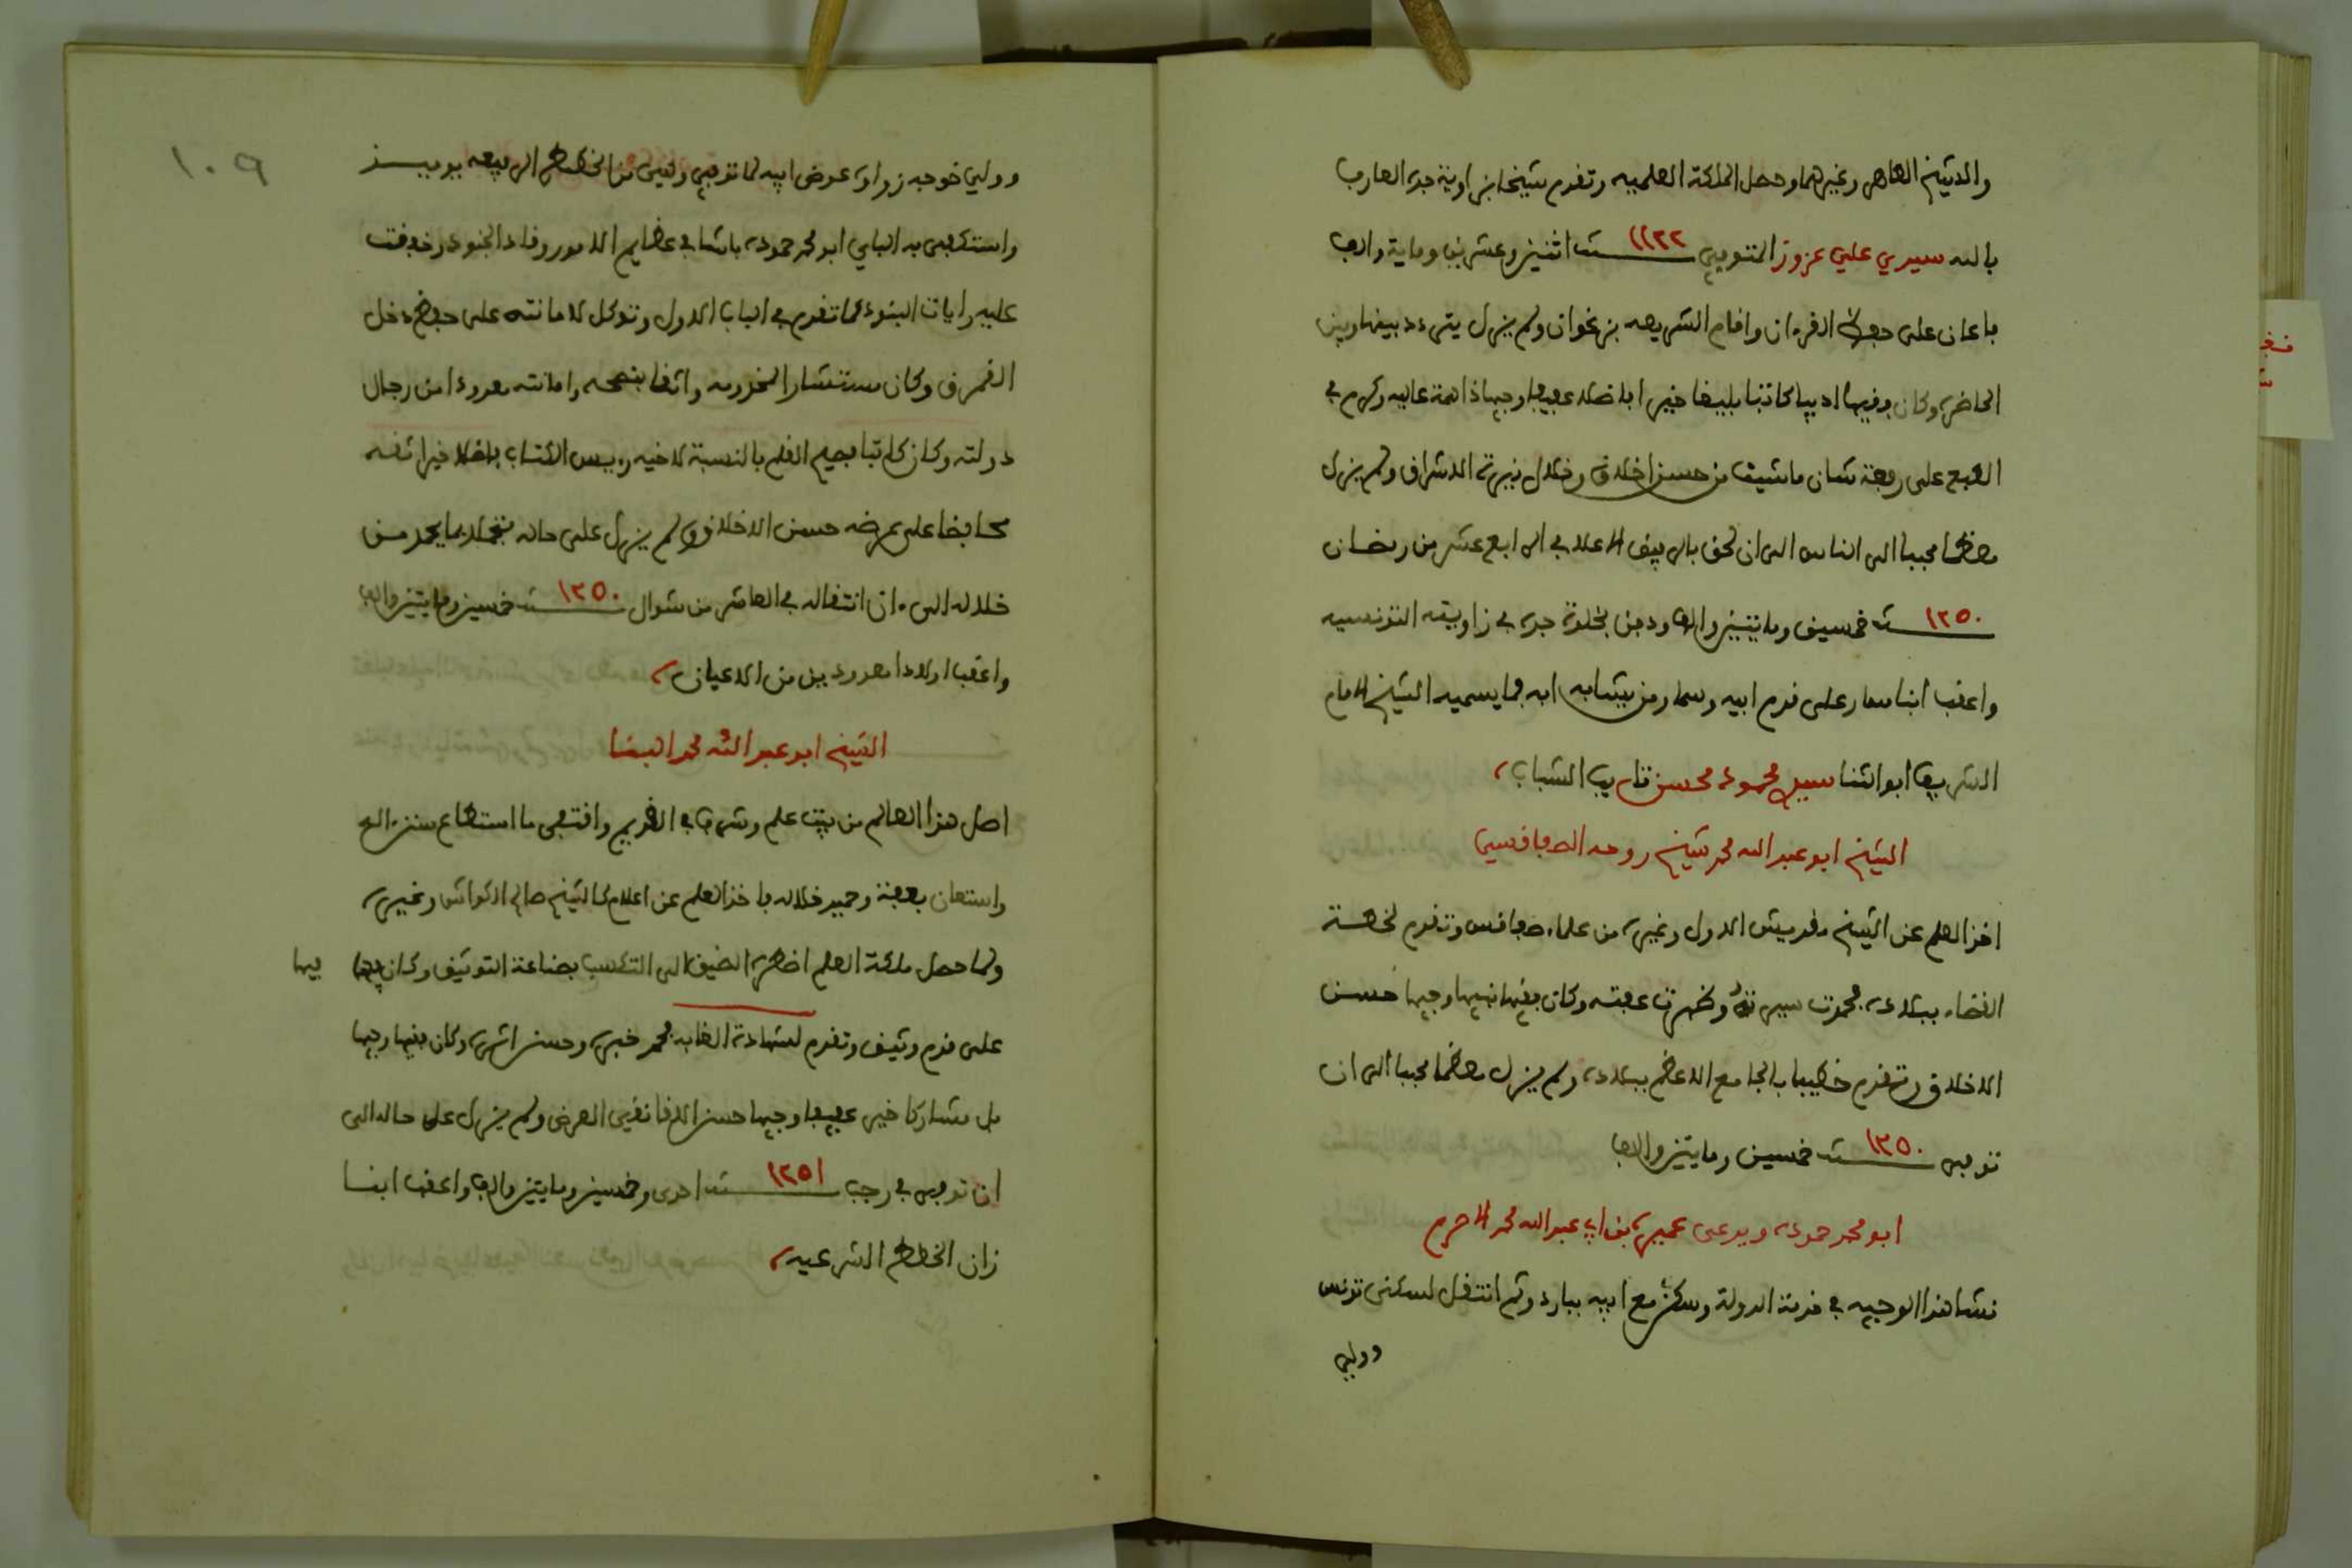 والشيخ الطاهر وغيرهما وحصل الملكة العلمية وتقدم شيخا بزاوية جده العارف
بالله سيدي علي عزوز المتوفى سنة ١١٢٢ اثنين وعشرين وماية والف
باعان على حفظ القرءان واقام الشريعه بزغوان ولم يزل يتردد بينها وبين
الحاضرة وكان فقيها اديبا كاتبا بليغا خيرا فاضلا عفيفا وجيها ذا همة عاليه وكرم في
الطبع على رفعة شان ما شيت من حسن اخلاق وخلال بنيرة الاشراق ولم يزل
معظما محببا الى الناس الى ان لحق بالرفيق الاعلا في الرابع عشر من رمضان
سنة ١٢٥٠ خمسين ومايتين والف ودفن بخلوة جده في زاويته التونسيه
واعقب ابنا سار على قدم ابيه وسما ومن يشابه ابه فما يسميه الشيخ الامام
الشريف ابو الثنا سيدي محمود محسن تاريب الشباب
الشيخ ابو عبد الله محمد شيخ روحه الصفاقسي
اخذ العلم عن الشيخ مقديش الاول وغيره من علماء صفاقس وتقدم لخطة
القضاء ببلاده فحمدت سيرته وظهرت عفته وكان فقيها نبيها وجيها حسن
الاخلاق وتقدم خطيبا بالجامع الاعظم ببلاده ولم يزل معظما محببا الى ان
توفى سنة ١٢٥٠ خمسين ومايتين والف
ابو محمد حموده ويدعى عميره بن ابي عبد الله محمد الاصرم
نشا هذا الوجيه في خدمة الدولة وسكن مع ابيه بباردو ثم انتقل لسكنى تونس
وولي
١٠٩
وولي خوجه زواوة عوض ابيه لما توفي وليس من الخطط الرفيعه يوميذ
واستكفى به الباي ابو محمد حموده باشا في عظايم الامور وقاد الجنود وخفقت
عليه رايات البنود كما تقدم في الباب الاول وتوكل لامانته على حفظ دخل
القمرق وكان مستشار المخدومه واثقا بنصحه وامانته معدودا من رجال
دولته وكان كاتبا فصيح القلم بالنسبة لاخيه رييس الكتاب فاضلا خيرا ثقه
محافظا على عرضه حسن الاخلاق ولم يزل على حاله متجملا بما يحمد من
خلاله الى ان انتقاله في العاشر من شوال سنة ١٢٥٠ خمسين ومايتين والف
واعقب اولادا معدودين من الاعيان
الشيخ ابو عبد الله محمد البنا
اصل هذا العالم من بيت علم وشرف في القديم واقتفى ما استطاع سنن
واستعان بعفة وحميد خلاله فاخذ العلم عن اعلام كالشيخ صالح الكواش وغيره
ولما حصل ملكة العلم اضطره الضيق الى التكسب بصناعة التوثيق وكان فيها
فيها
على قدم وثيق وتقدم لشهادة الغابه فحمد خبره وحسن اثره وكان فقيها وجيها
بل مشاركا خيرا عفيفا وجيها حسن اللقا نقي العرض ولم يزل على حاله الى
ان توفي في رجب سنة ١٢٥١ احدى وخمسين ومايتين والف واعقب ابنا
زان الخطط الشرعيه